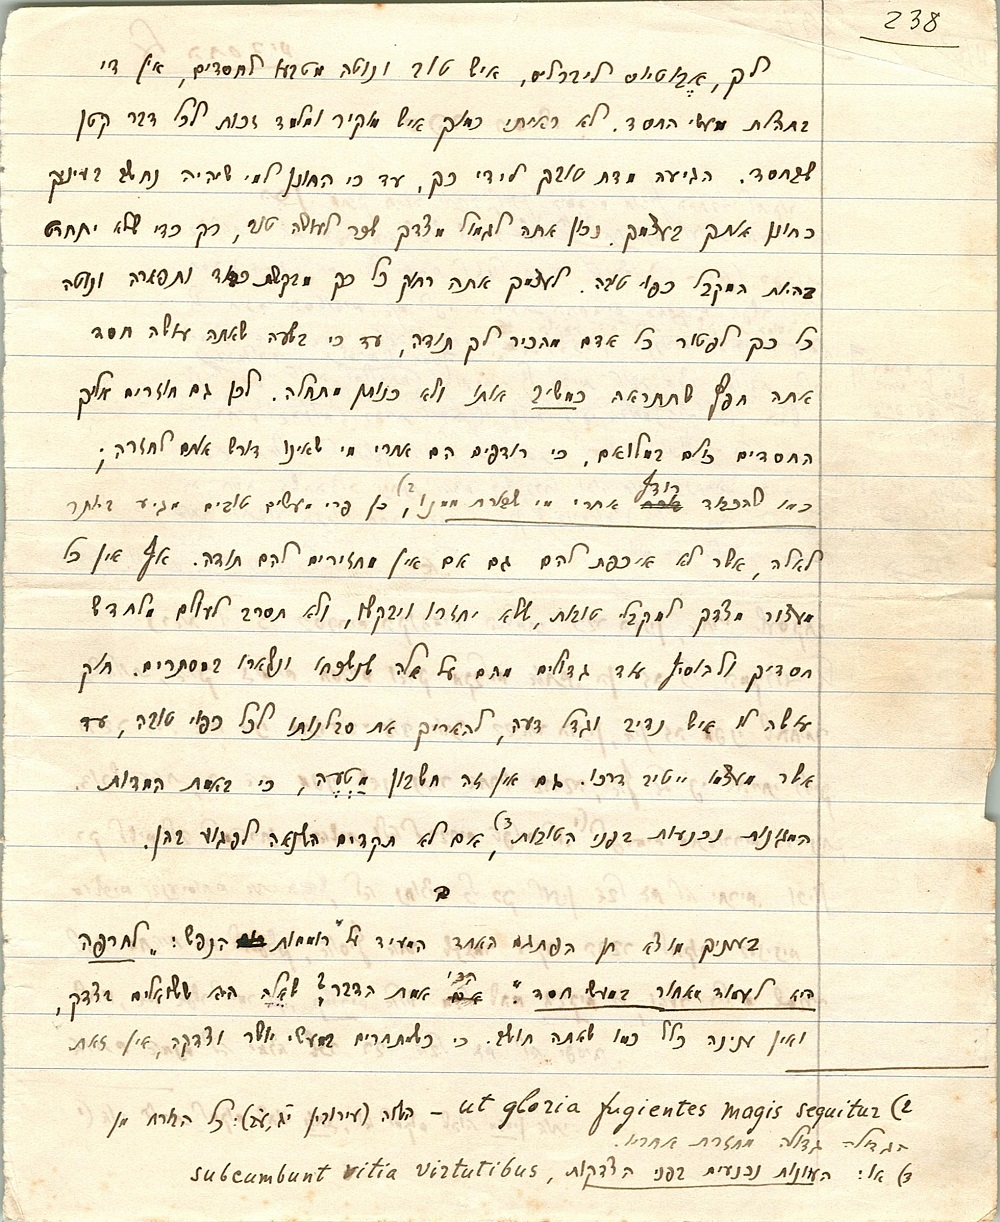 238
לך, אבוטיוס ליברליס, איש טוב ונוטה מטבעו לחסדים, אין די
בתהלת מעשי החסד. לא ראיתי כמוך איש מוקיר ומלמד זכות לכל דבר קטן
שבחסד. הגיעה מדת טובך לידי כך, עד כי החונן למי שיהיה נחשב בעיניך
כחונן אותך בעצמך. נכון אתה לגמול מצדך שכר לעושה טוב, רק כדי שלא יתחרט
בהיות המקבל כפוי טובה. לעצמך אתה רחוק כל כך מבקשת כבוד ותפארה ונוטה
כל כך לפטור כל אדם מהכיר לך תודה, עד כי בשעה שאתה עושה חסד
אתה חפץ שתתראה כמשיב אותו ולא כנותן מתחלה. לכן גם חוזרים אליך
החסדים כולם במלואם, כי רודפים הם אחרי מי שאינו דורש אותם לחזרה;
כמו שהכבוד רודף אחרי מי שבורח ממנו 2), כן פרי מעשים טובים מגיע ביותר
לאלה, אשר לא איכפת להם גם אם אין מחזירים להם תודה. אף אין כל
מעצור מצדך למקבלי טובות, שלא יחזרו ויבקשו, ולא תסרב לעולם מלחדש
חסדיך ולהוסיף עוד גדולים מהם על אלה שנשכחו ונשארו במסתרים. חוק
עושה לו איש נדיב וגדל דעה, להאריך את סבלנותו לכל כפוי טובה, עד
אשר מעצמו ייטיב דרכו. גם אין זה חשבון מטעה, כי באמת המדות
המגונות נכנעות בפני הטובות 3), אם לא תקדים השנאה לפגוע בהן.
ב
בעיניך מוצא חן הפתגם האחד המעיד על רוממות הנפש: "לחרפה
היא לעמוד מאחור במעשי חסד". הכי אמת הדבר? שאלה היא ששואלים בצדק,
ואין ענינה כלל כמו שאתה חושב. כי כשמתחרים במעשי יושר וצדקה, אין זאת
2) ut gloria fugientes magis sequitur – השוה (עירובין י״ג, ע״ב): כל הבורח מן
הגדולה גדולה מחזרת אחריו.
3) או: העונות נכנעים בפני הצדקות, subcumbunt vitia virtutibus